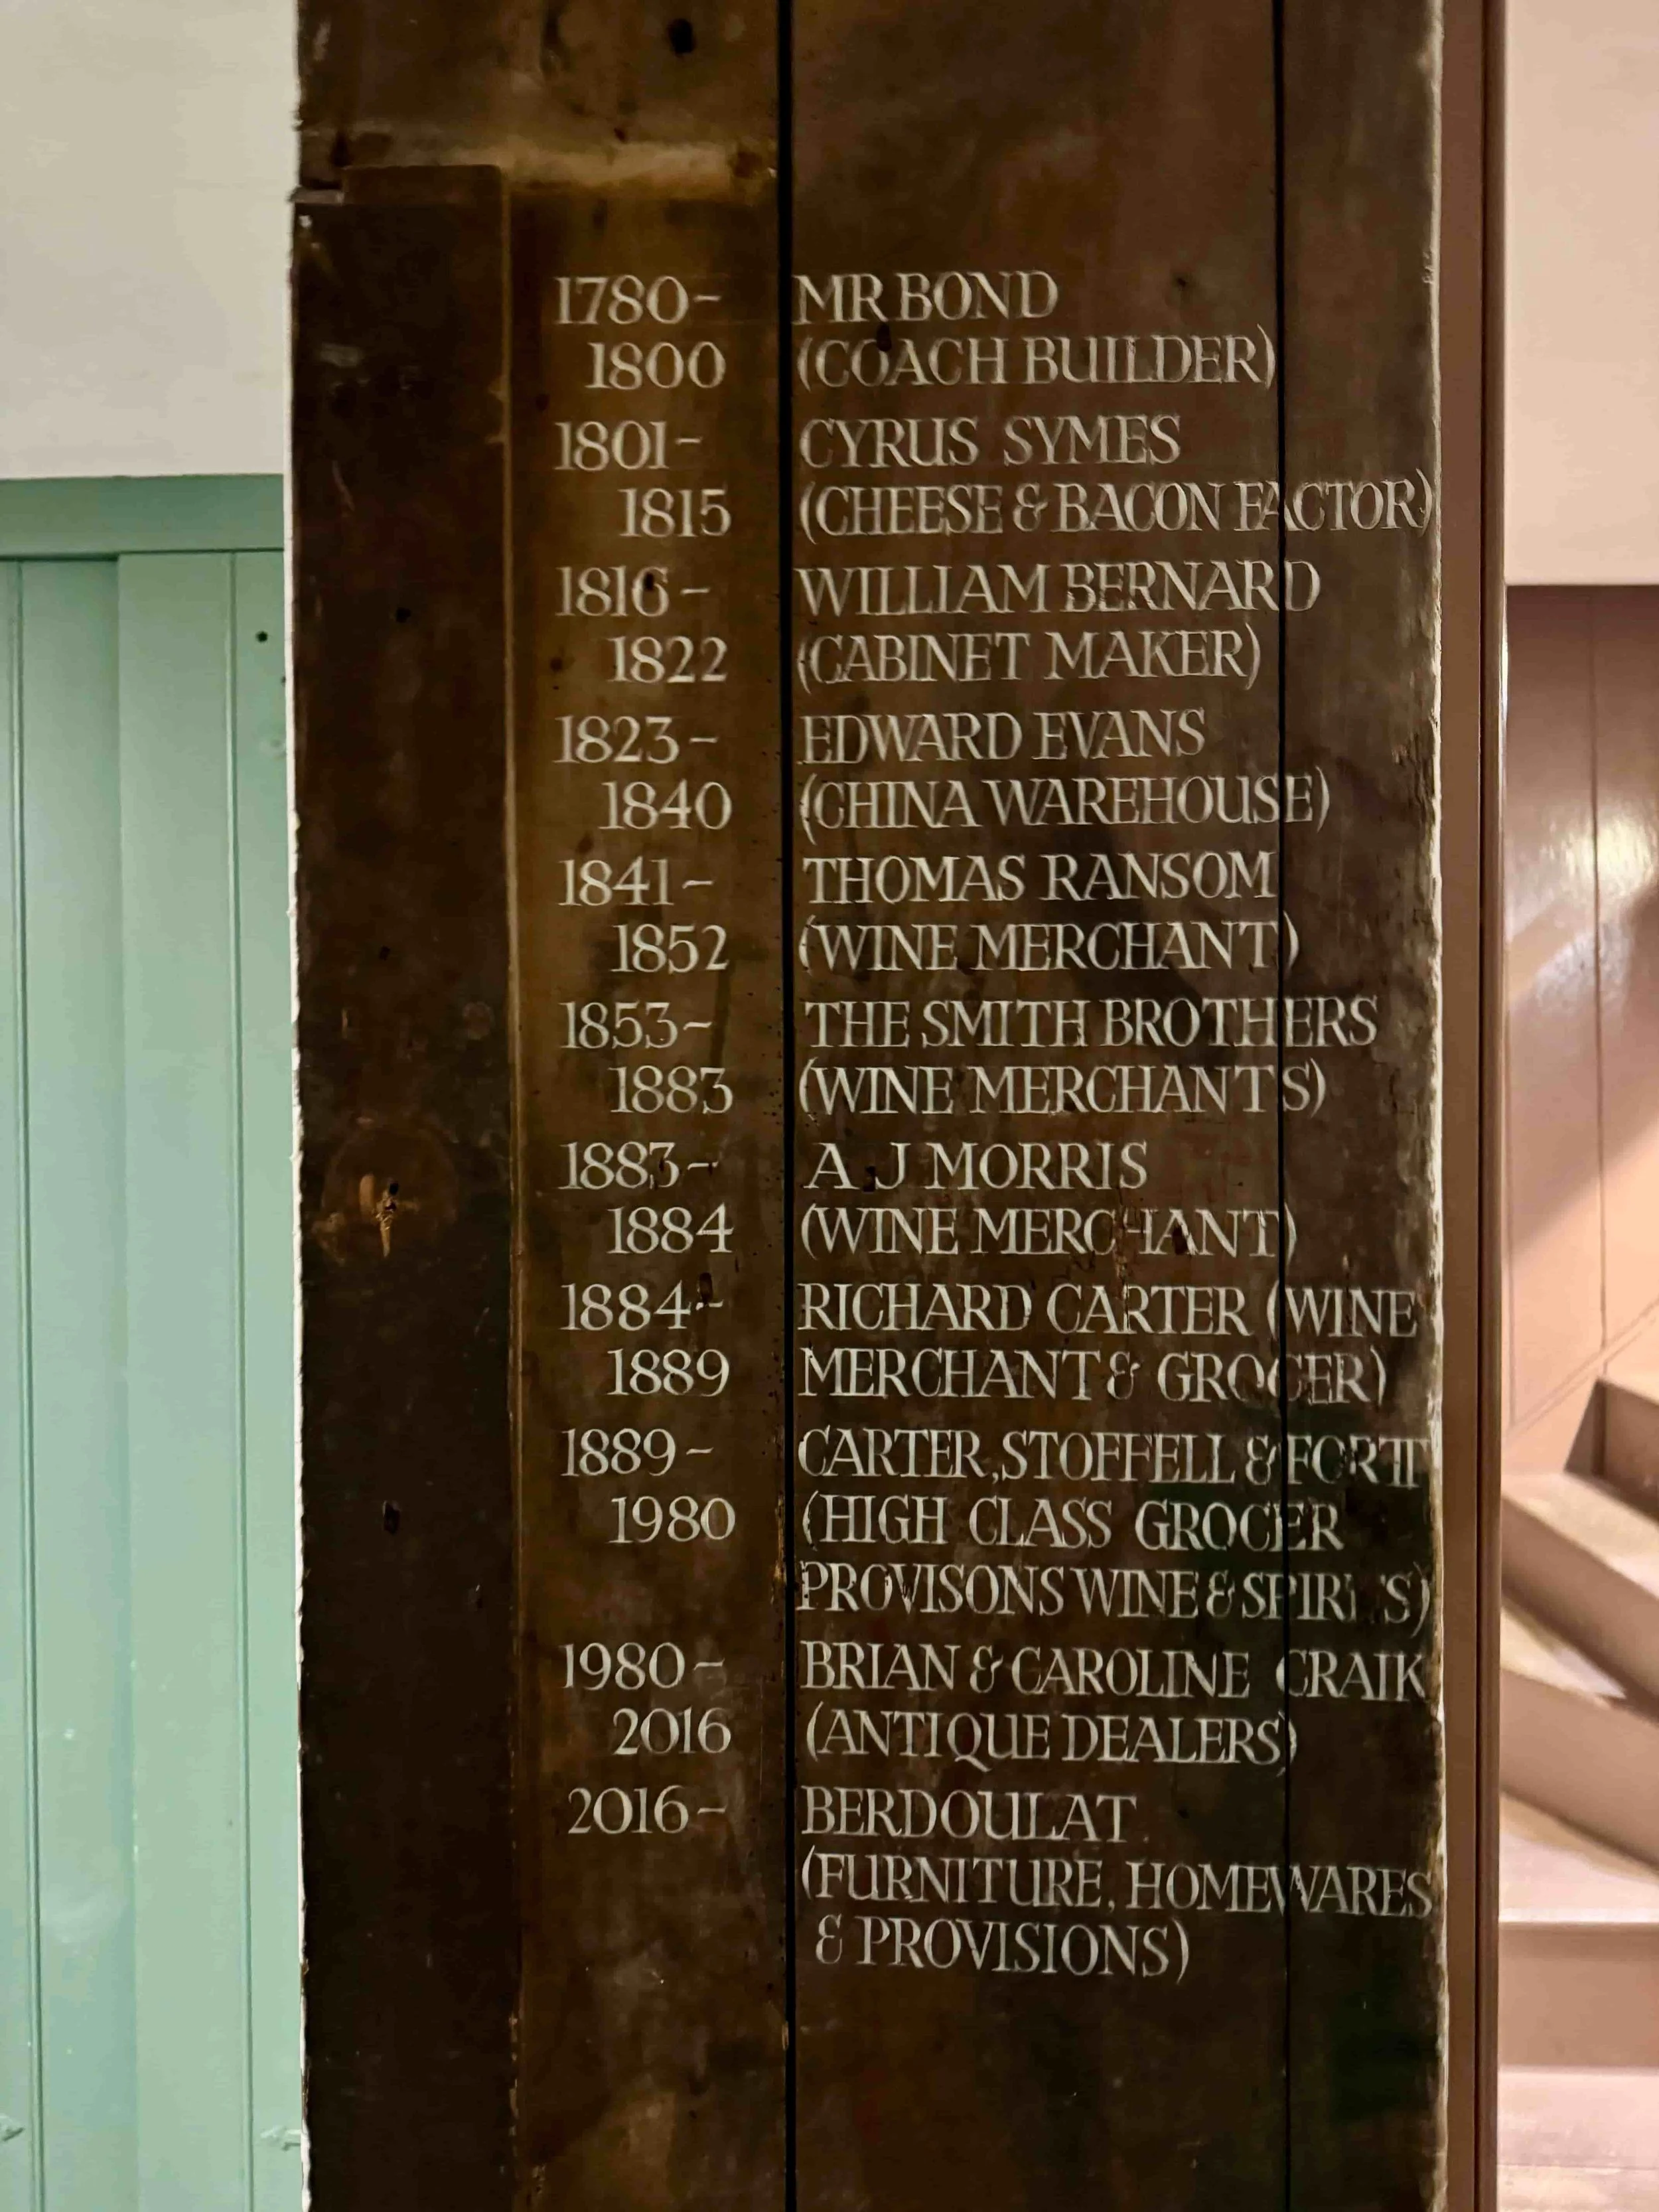 1780– MR BOND
1800 (COACH BUILDER)
1801– CYRUS SYMES
1815 (CHEESE & BACON FACTOR)
1816– WILLIAM BERNARD
1822 (CABINET MAKER)
1823– EDWARD EVANS
1840 (CHINA WAREHOUSE)
1841– THOMAS RANSOM
1852 (WINE MERCHANT)
1853– THE SMITH BROTHERS
1883 (WINE MERCHANTS)
1883– A J MORRIS
1884 (WINE MERCHANT)
1884– RICHARD CARTER (WINE
1889 MERCHANT & GROCER)
1889– CARTER, STOFFELL & FORTT
1980 (HIGH CLASS GROCER
PROVISONS WINE & SPIRITS)
1980– BRIAN & CAROLINE CRAIK
2016 (ANTIQUE DEALERS)
2016– BERDOULAT
(FURNITURE, HOMEWARES
& PROVISIONS)